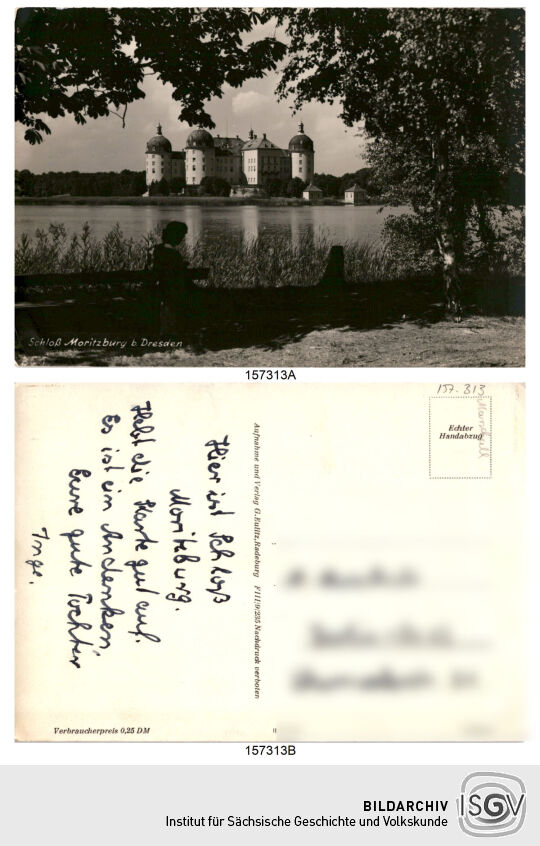 Schloß Moritzburg b. Dresden
157313A
157-313
Echter
Handabzug
Aufnahme und Verlag G. Eulitz, Radeburg F III/9/235 Nachdruck verboten
Hier ist Schloß
Moritzburg.
Hebt die Karte gut auf.
Es ist ein Andenken,
Eure gute Tochter
Inge.
Verbraucherpreis 0,25 DM
157313B
BILDARCHIV
Institut für Sächsische Geschichte und Volkskunde
ISGV